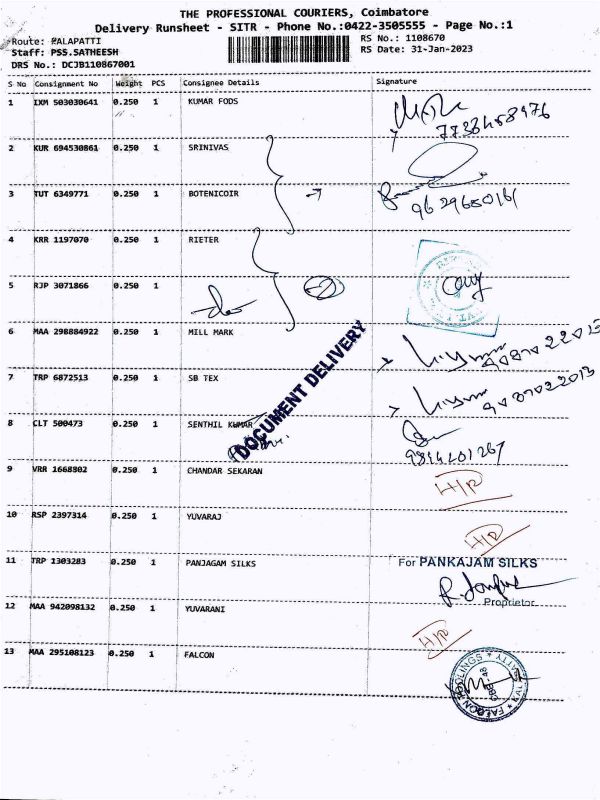 THE PROFESSIONAL COURIERS, Coimbatore
Delivery Runsheet - SITR - Phone No.:0422-3505555 - Page No.:1
Route: PALAPATTI
RS No.: 1108670
Staff: PSS.SATHEESH
RS Date: 31-Jan-2023
DRS No.: DCJB110867001
S No Consignment No Weight PCS Consignee Details Signature
1 IXM 503030641 0.250 1 KUMAR FODS
7738458976
2 KUR 694530861 0.250 1 SRINIVAS
3 TUT 6349771 0.250 1 BOTENICOIR
9629650161
4 KRR 1197070 0.250 1 RIETER
5 RJP 3071866 0.250 1
6 MAA 298884922 0.250 1 MILL MARK
7 TRP 6872513 0.250 1 SB TEX
DOCUMENT DELIVERY
8 CLT 500473 0.250 1 SENTHIL KUMAR
9 VRR 1668802 0.250 1 CHANDAR SEKARAN
H/R
10 RSP 2397314 0.250 1 YUVARAJ
H/R
11 TRP 1303283 0.250 1 PANJAGAM SILKS
For PANKAJAM SILKS
Proprietor
12 MAA 942098132 0.250 1 YUVARANI
H/R
13 MAA 295108123 0.250 1 FALCON